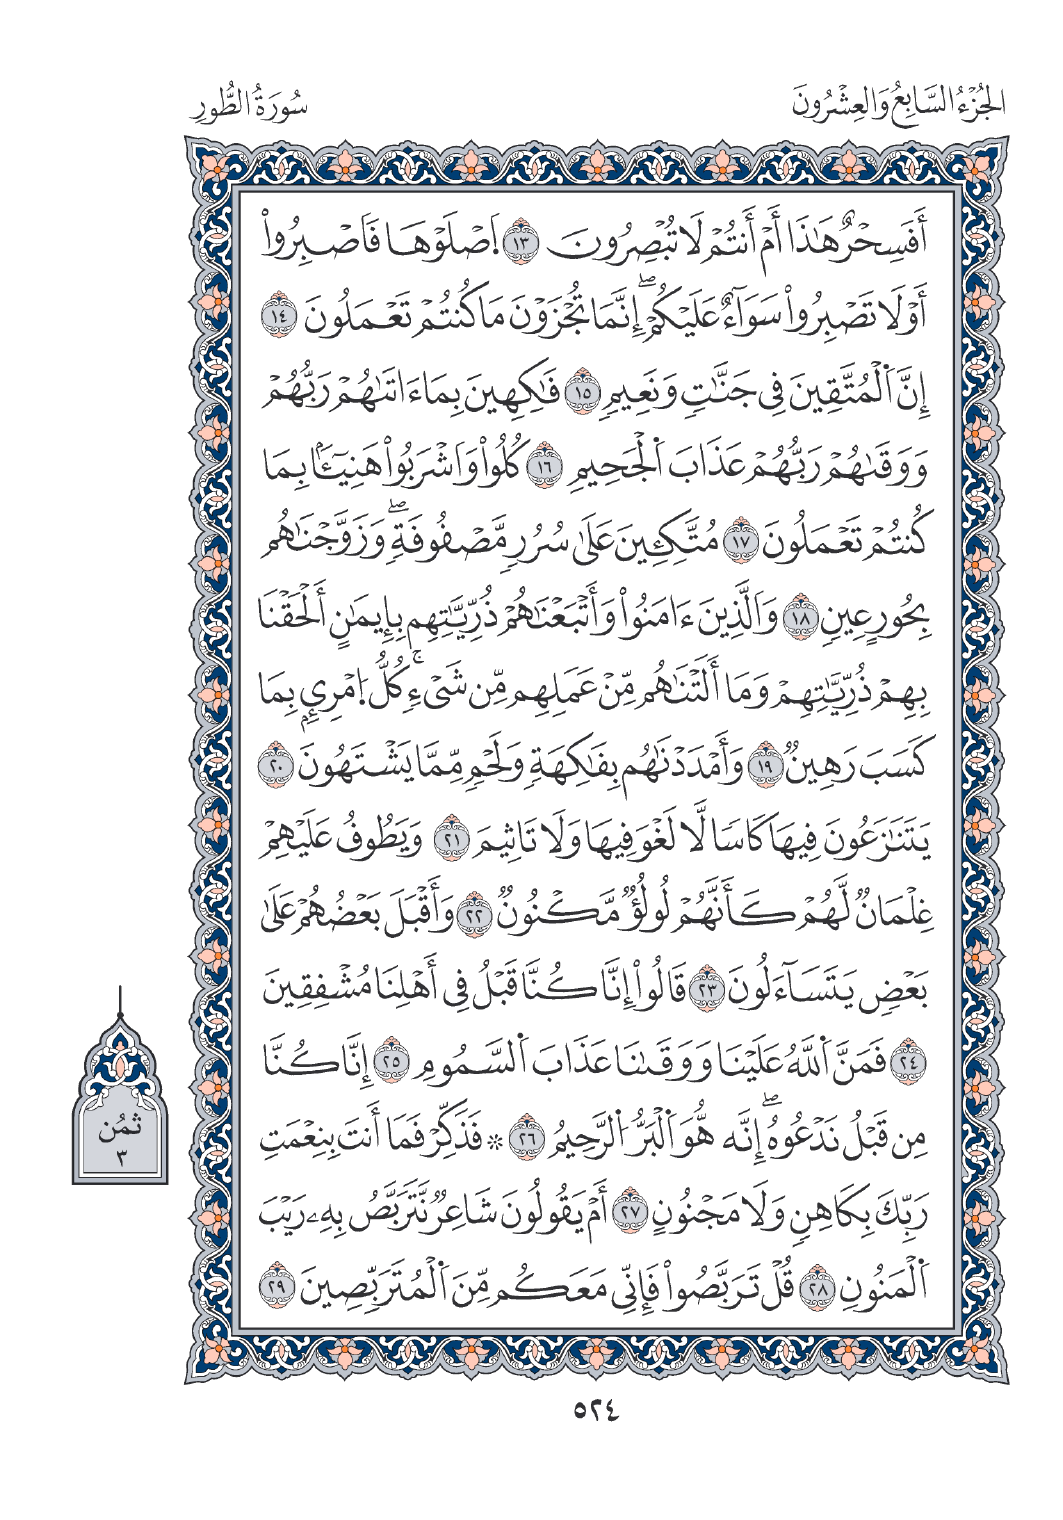 الجُزْءُ السَّابِعُ وَالعِشْرُونَ
سُورَةُ الطُّورِ
أَفَسِحْرٌ هَٰذَا أَمْ أَنتُمْ لَا تُبْصِرُونَ ١٣ اَ۪صْلَوْهَا فَاَصْبِرُواْ
أَوْ لَا تَصْبِرُواْ سَوَآءٌ عَلَيْكُمْۖ إِنَّمَا تُجْزَوْنَ مَا كُنتُمْ تَعْمَلُونَ ١٤
إِنَّ اَ۬لْمُتَّقِينَ فِي جَنَّٰتٖ وَنَعِيمٖ ١٥ فَٰكِهِينَ بِمَا ءَاتَىٰهُمْ رَبُّهُمْ
وَوَقَىٰهُمْ رَبُّهُمْ عَذَابَ اَ۬لْجَحِيمِ ١٦ كُلُواْ وَاَشْرَبُواْ هَنِيٓـَٔۢا بِمَا
كُنتُمْ تَعْمَلُونَ ١٧ مُتَّكِـِٔينَ عَلَىٰ سُرُرٖ مَّصْفُوفَةٖۖ وَزَوَّجْنَٰهُم
بِحُورٍ عِينٖ ١٨ وَاَلَّذِينَ ءَامَنُواْ وَأَتْبَعْنَٰهُمْ ذُرِّيَّٰتِهِم بِإِيمَٰنٍ أَلْحَقْنَا
بِهِمْ ذُرِّيَّٰتِهِمْ وَمَا أَلَتْنَٰهُم مِّنْ عَمَلِهِم مِّن شَيْءٖۚ كُلُّ اُ۪مْرِيِٕۢ بِمَا
كَسَبَ رَهِينٞ ١٩ وَأَمْدَدْنَٰهُم بِفَٰكِهَةٖ وَلَحْمٖ مِّمَّا يَشْتَهُونَ ٢٠
يَتَنَٰزَعُونَ فِيهَا كَاسٗا لَّا لَغْوَ فِيهَا وَلَا تَاثِيمَ ٢١ وَيَطُوفُ عَلَيْهِمْ
غِلْمَانٞ لَّهُمْ كَأَنَّهُمْ لُولُؤٞ مَّكْنُونٞ ٢٢ وَأَقْبَلَ بَعْضُهُمْ عَلَىٰ
بَعْضٖ يَتَسَآءَلُونَ ٢٣ قَالُواْ إِنَّا كُنَّا قَبْلُ فِي أَهْلِنَا مُشْفِقِينَ
٢٤ فَمَنَّ اَ۬للَّهُ عَلَيْنَا وَوَقَىٰنَا عَذَابَ اَ۬لسَّمُومِ ٢٥ إِنَّا كُنَّا
مِن قَبْلُ نَدْعُوهُۖ إِنَّه هُّوَ اَ۬لْبَرُّ اُ۬لرَّحِيمُ ٢٦ ۞ فَذَكِّرْ فَمَا أَنتَ بِنِعْمَتِ
رَبِّكَ بِكَاهِنٖ وَلَا مَجْنُونٍ ٢٧ أَمْ يَقُولُونَ شَاعِرٞ نَّتَرَبَّصُ بِهِۦ رَيْبَ
اَ۬لْمَنُونِ ٢٨ قُلْ تَرَبَّصُواْ فَإِنِّي مَعَكُم مِّنَ اَ۬لْمُتَرَبِّصِينَ ٢٩
ثُمُن
٣
٥٢٤